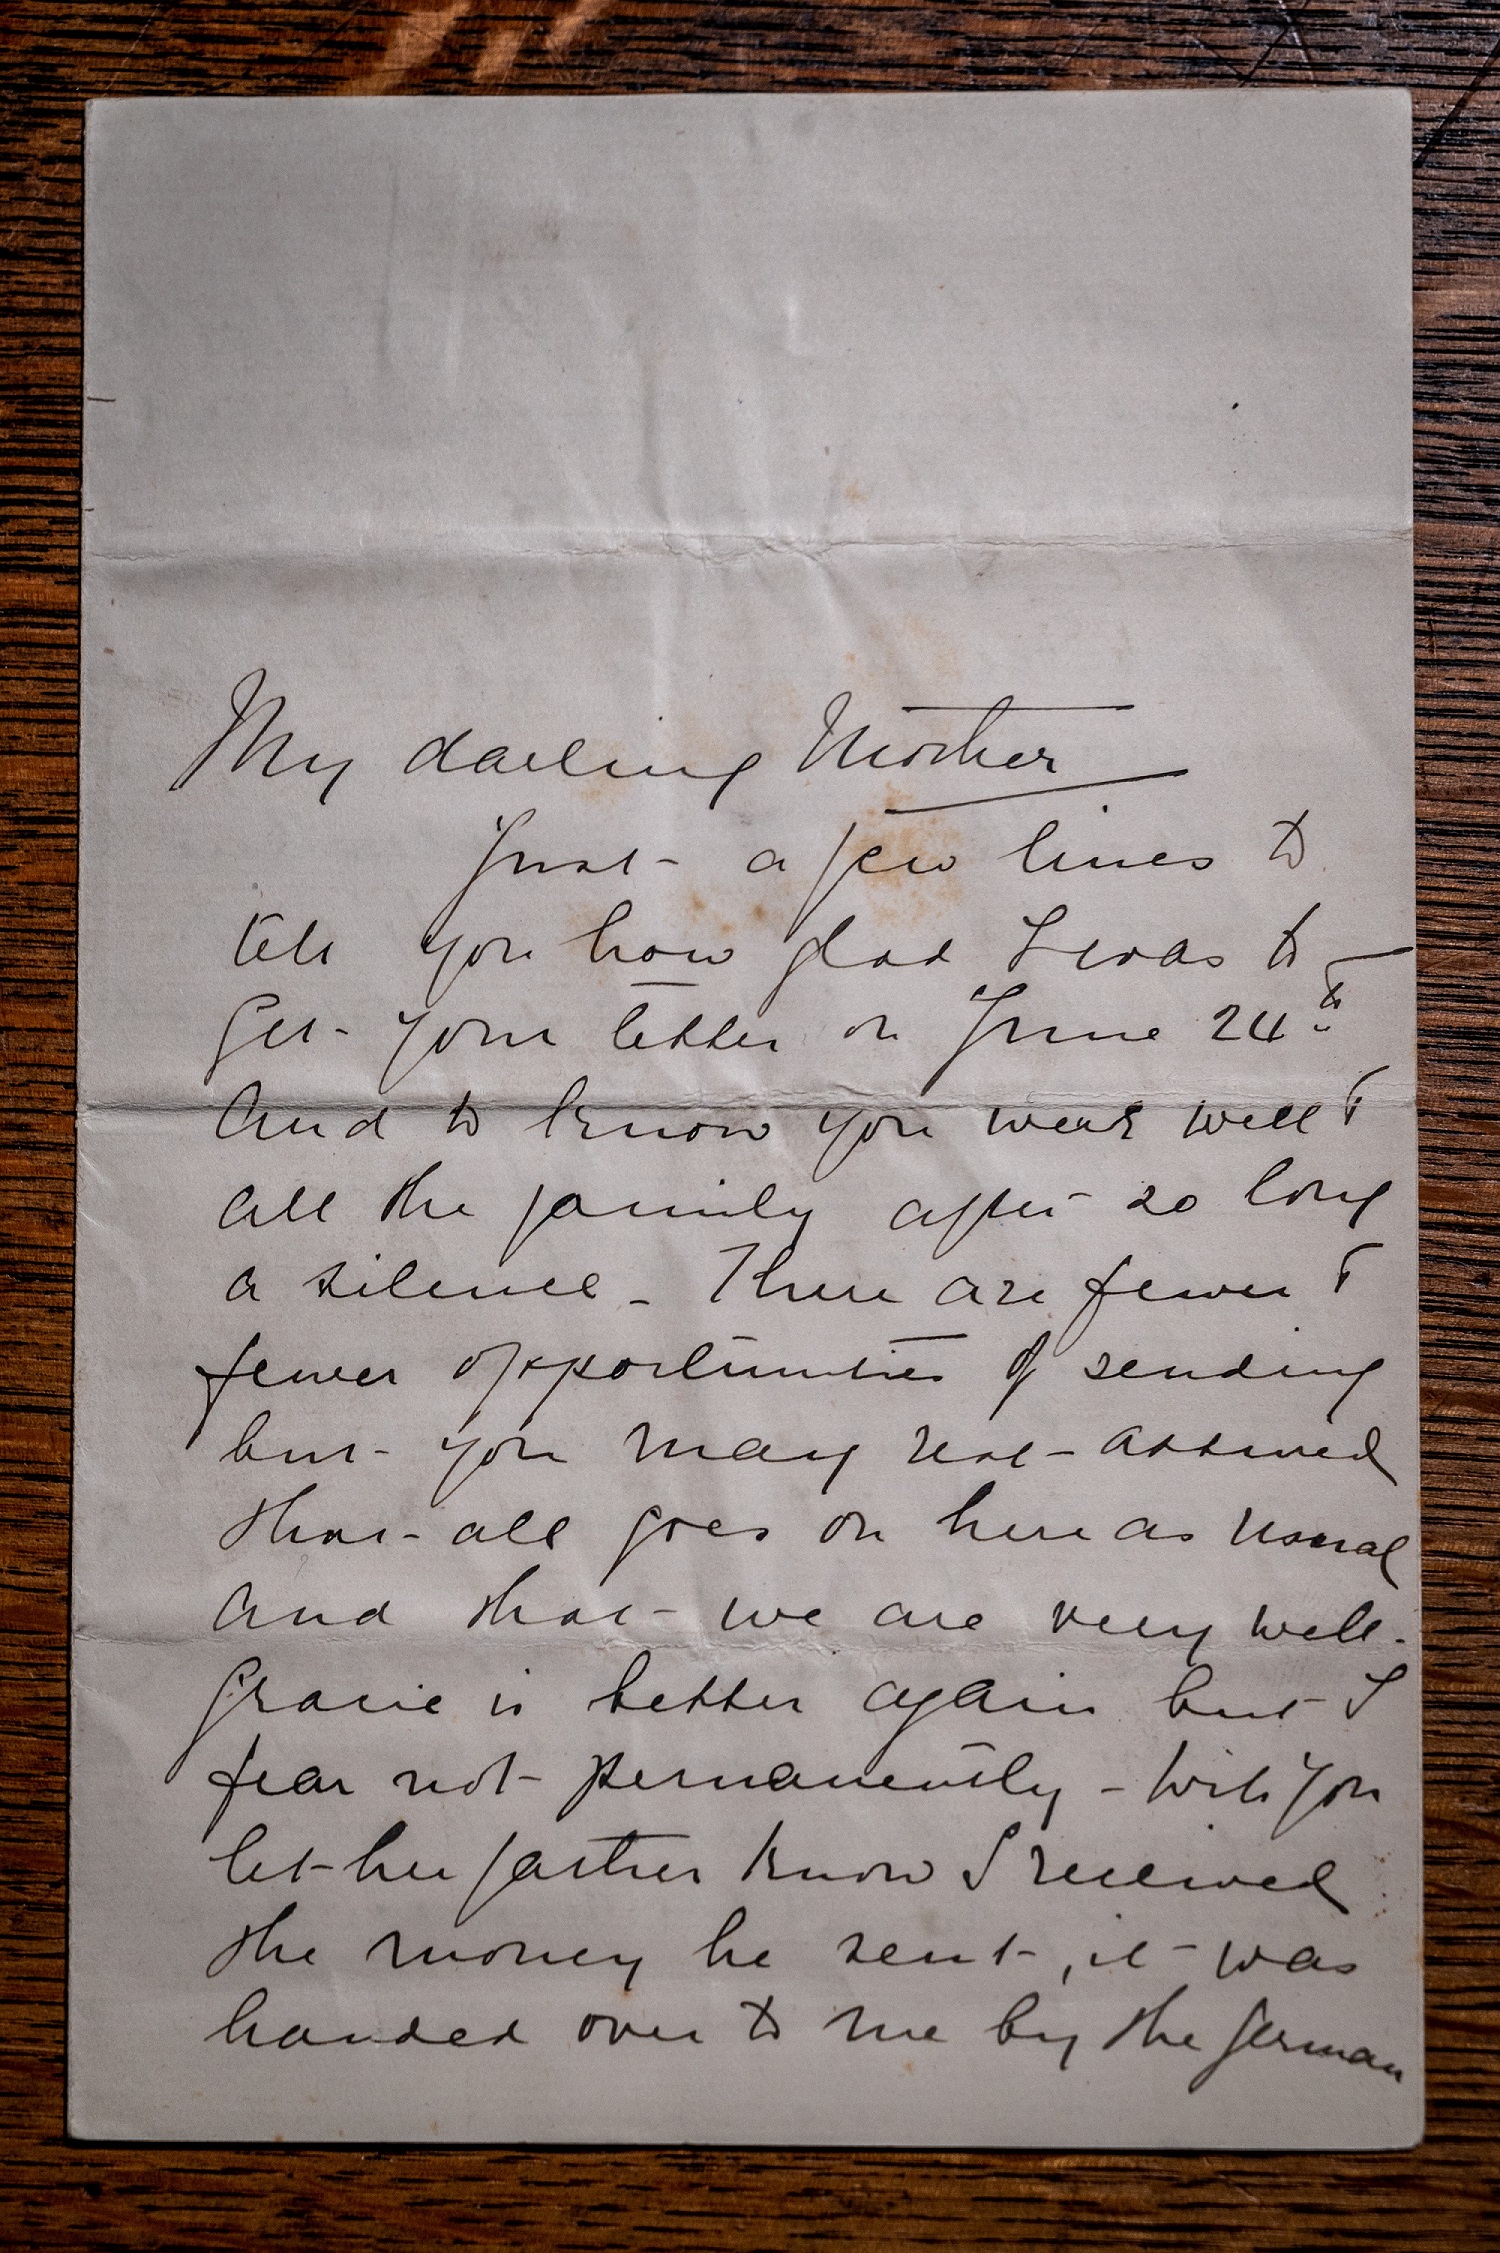 My darling Mother
Just - a few lines to
tell you how glad I was to
get - your letter on June 24th
and to know you were well &
all the family after - so long
a silence - There are fewer &
fewer opportunities of sending
but - you may rest - assured
that - all goes on here as usual
and that - we are very well -
Gracie is better again but - I
fear not - permanently - Will you
let - her father know I received
the money he sent -, it - was
handed over to me by the German